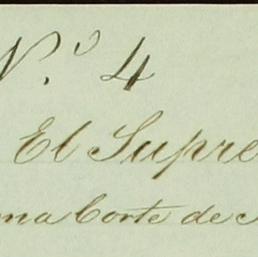 N.º 4
El Supre
ma Corte de